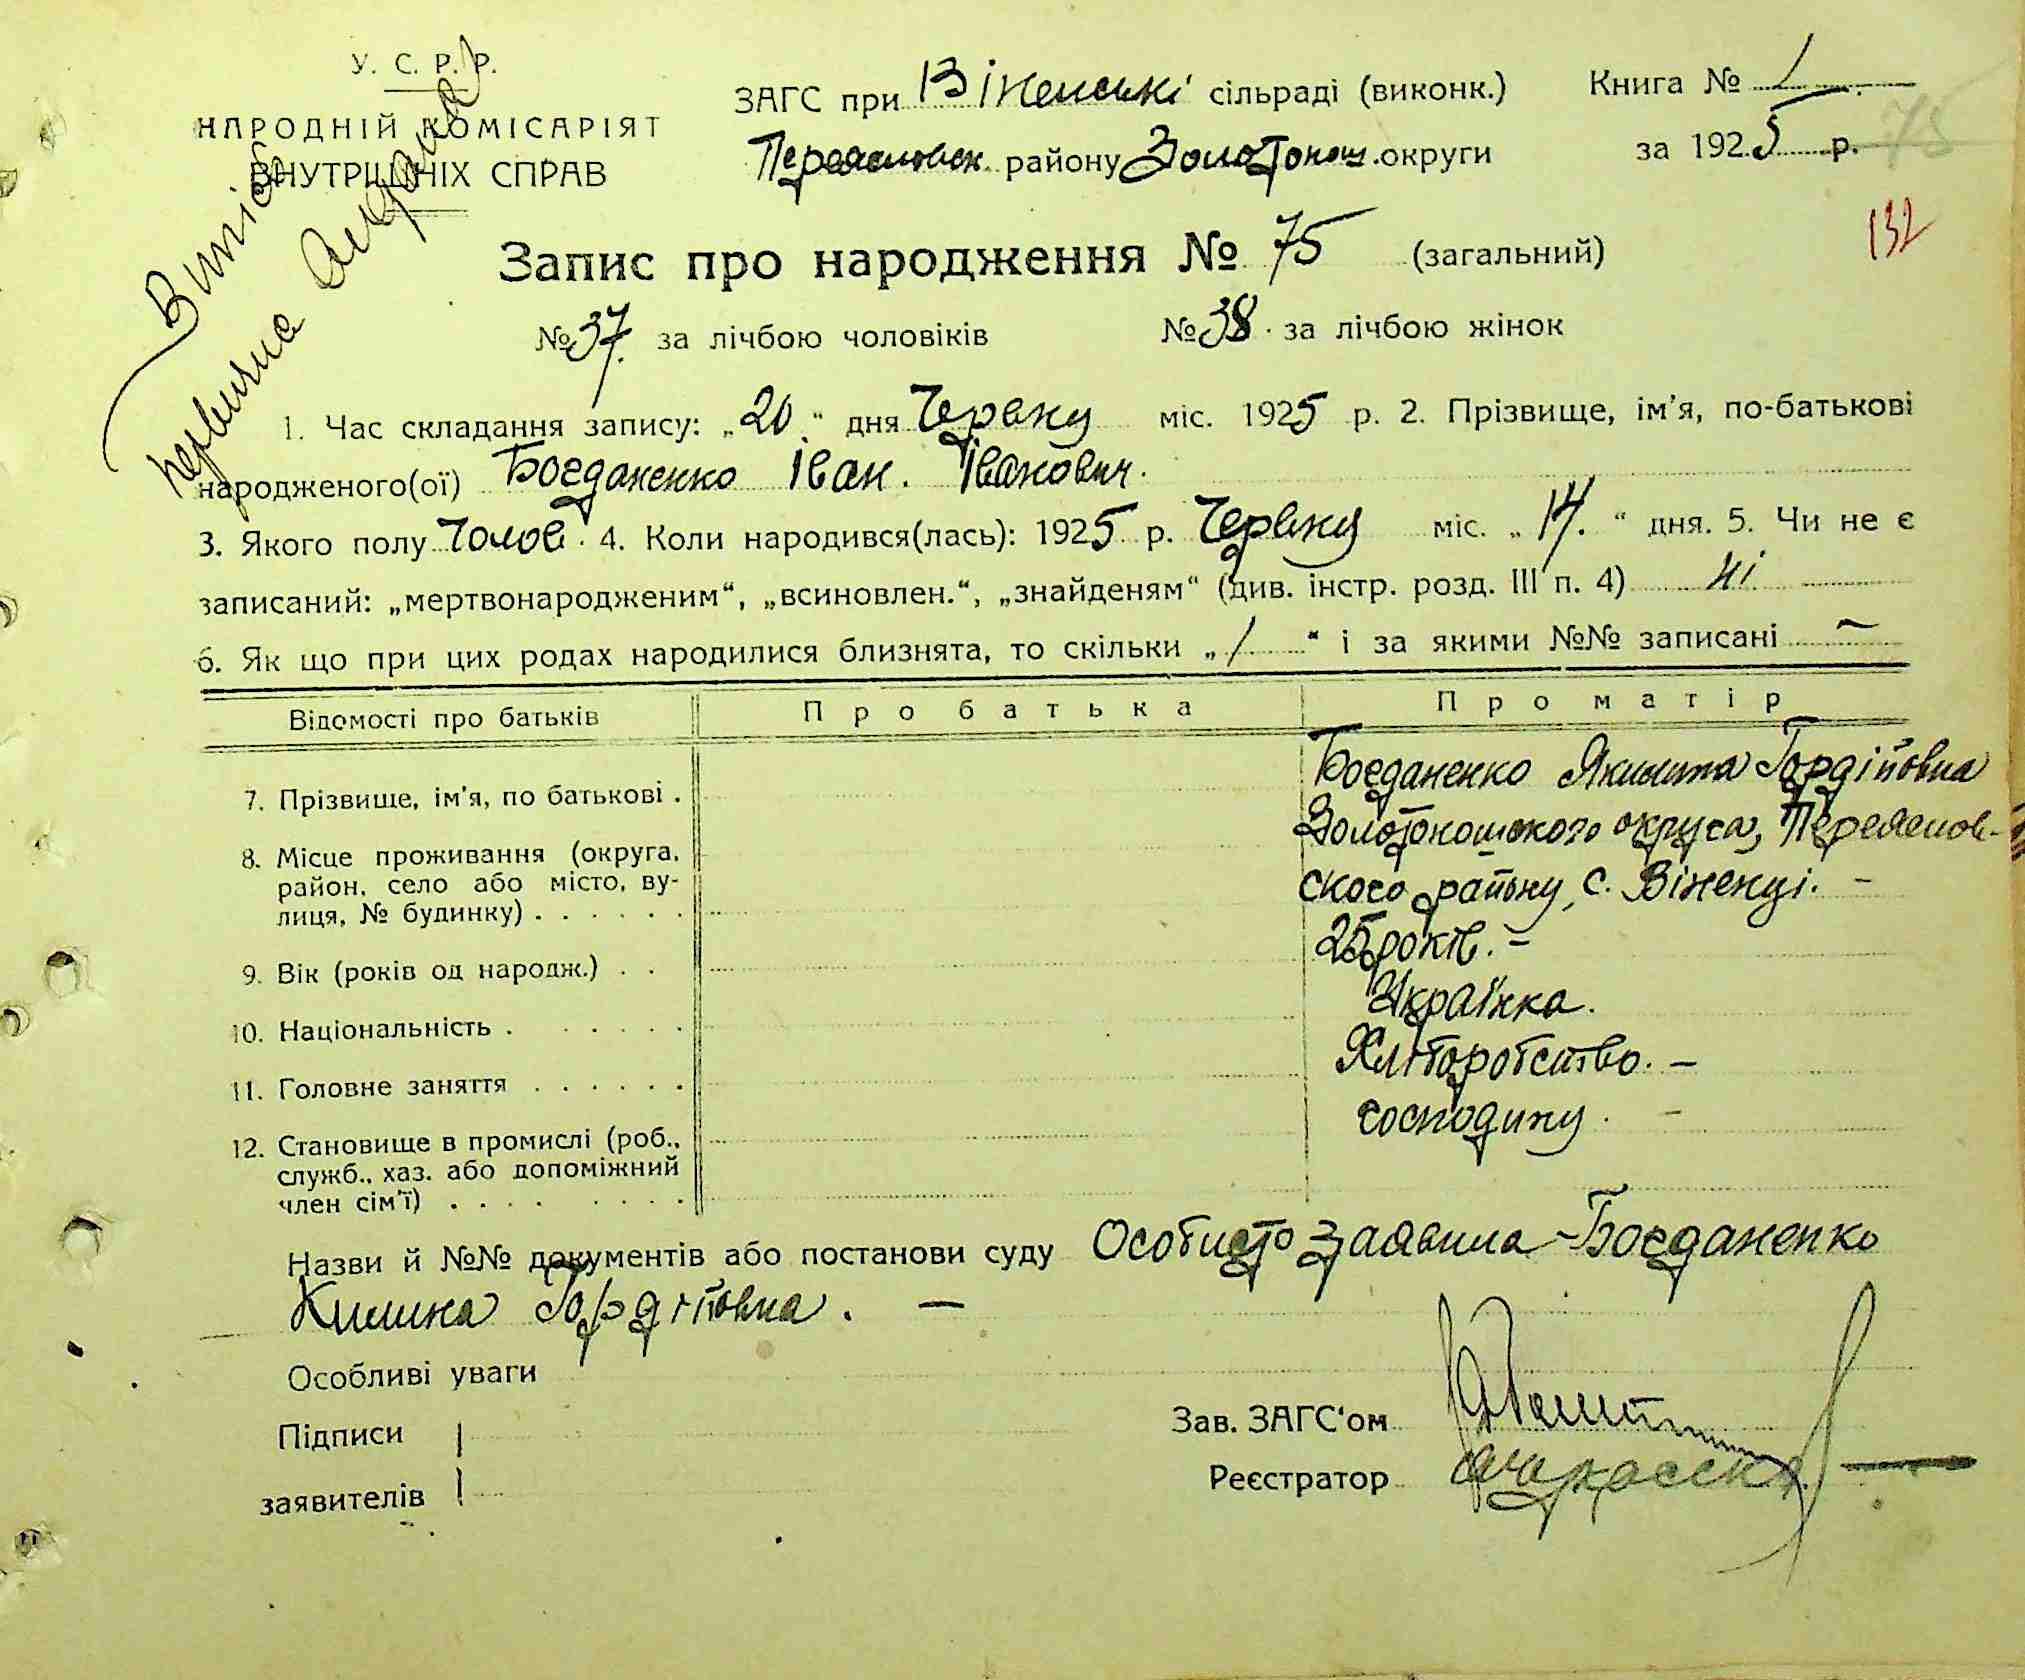 У. С. Р. Р.
НАРОДНІЙ КОМІСАРІЯТ
ВНУТРІШНІХ СПРАВ
ЗАГС при Віненські сільраді (виконк.)
Переяславск. району Золотонош. округи
Книга № 1
за 1925 р.
75
132
Витяг
первична видана
Запис про народження № 75 (загальний)
№ 37. за лічбою чоловіків № 38. за лічбою жінок
1. Час складання запису: „20.“ дня Червку міс. 1925 р. 2. Прізвище, ім'я, по-батькові
народженого(ої) Богданенко Іван. Іванович.
3. Якого полу Чолов. 4. Коли народився(лась): 1925 р. Червку міс. „14.“ дня. 5. Чи не є
записаний: „мертвонародженим“, „всиновлен.“, „знайденям“ (див. інстр. розд. III п. 4) ні
6. Як що при цих родах народилися близнята, то скільки „/“ і за якими №№ записані —
Відомості про батьків Про батька Про матір
7. Прізвище, ім'я, по батькові . Богданенко Гордіївна
8. Місце проживання (округа, Золотоношского округа, Переяслов-
район, село або місто, ву- ского району, с. Віненці. -
лиця, № будинку) . . . . . .
9. Вік (років од народж.) . . 25 років. -
10. Національність . . . . . . Українка.
11. Головне заняття . . . . . . Хліборобство. -
12. Становище в промислі (роб., господину. -
служб., хаз. або допоміжний
член сім'ї) . . . . . . . .
Назви й №№ документів або постанови суду Особисто заявила - Богданенко
Килина Гордіївна. —
Особливі уваги
Підписи
заявителів
Зав. ЗАГС'ом
Реєстратор